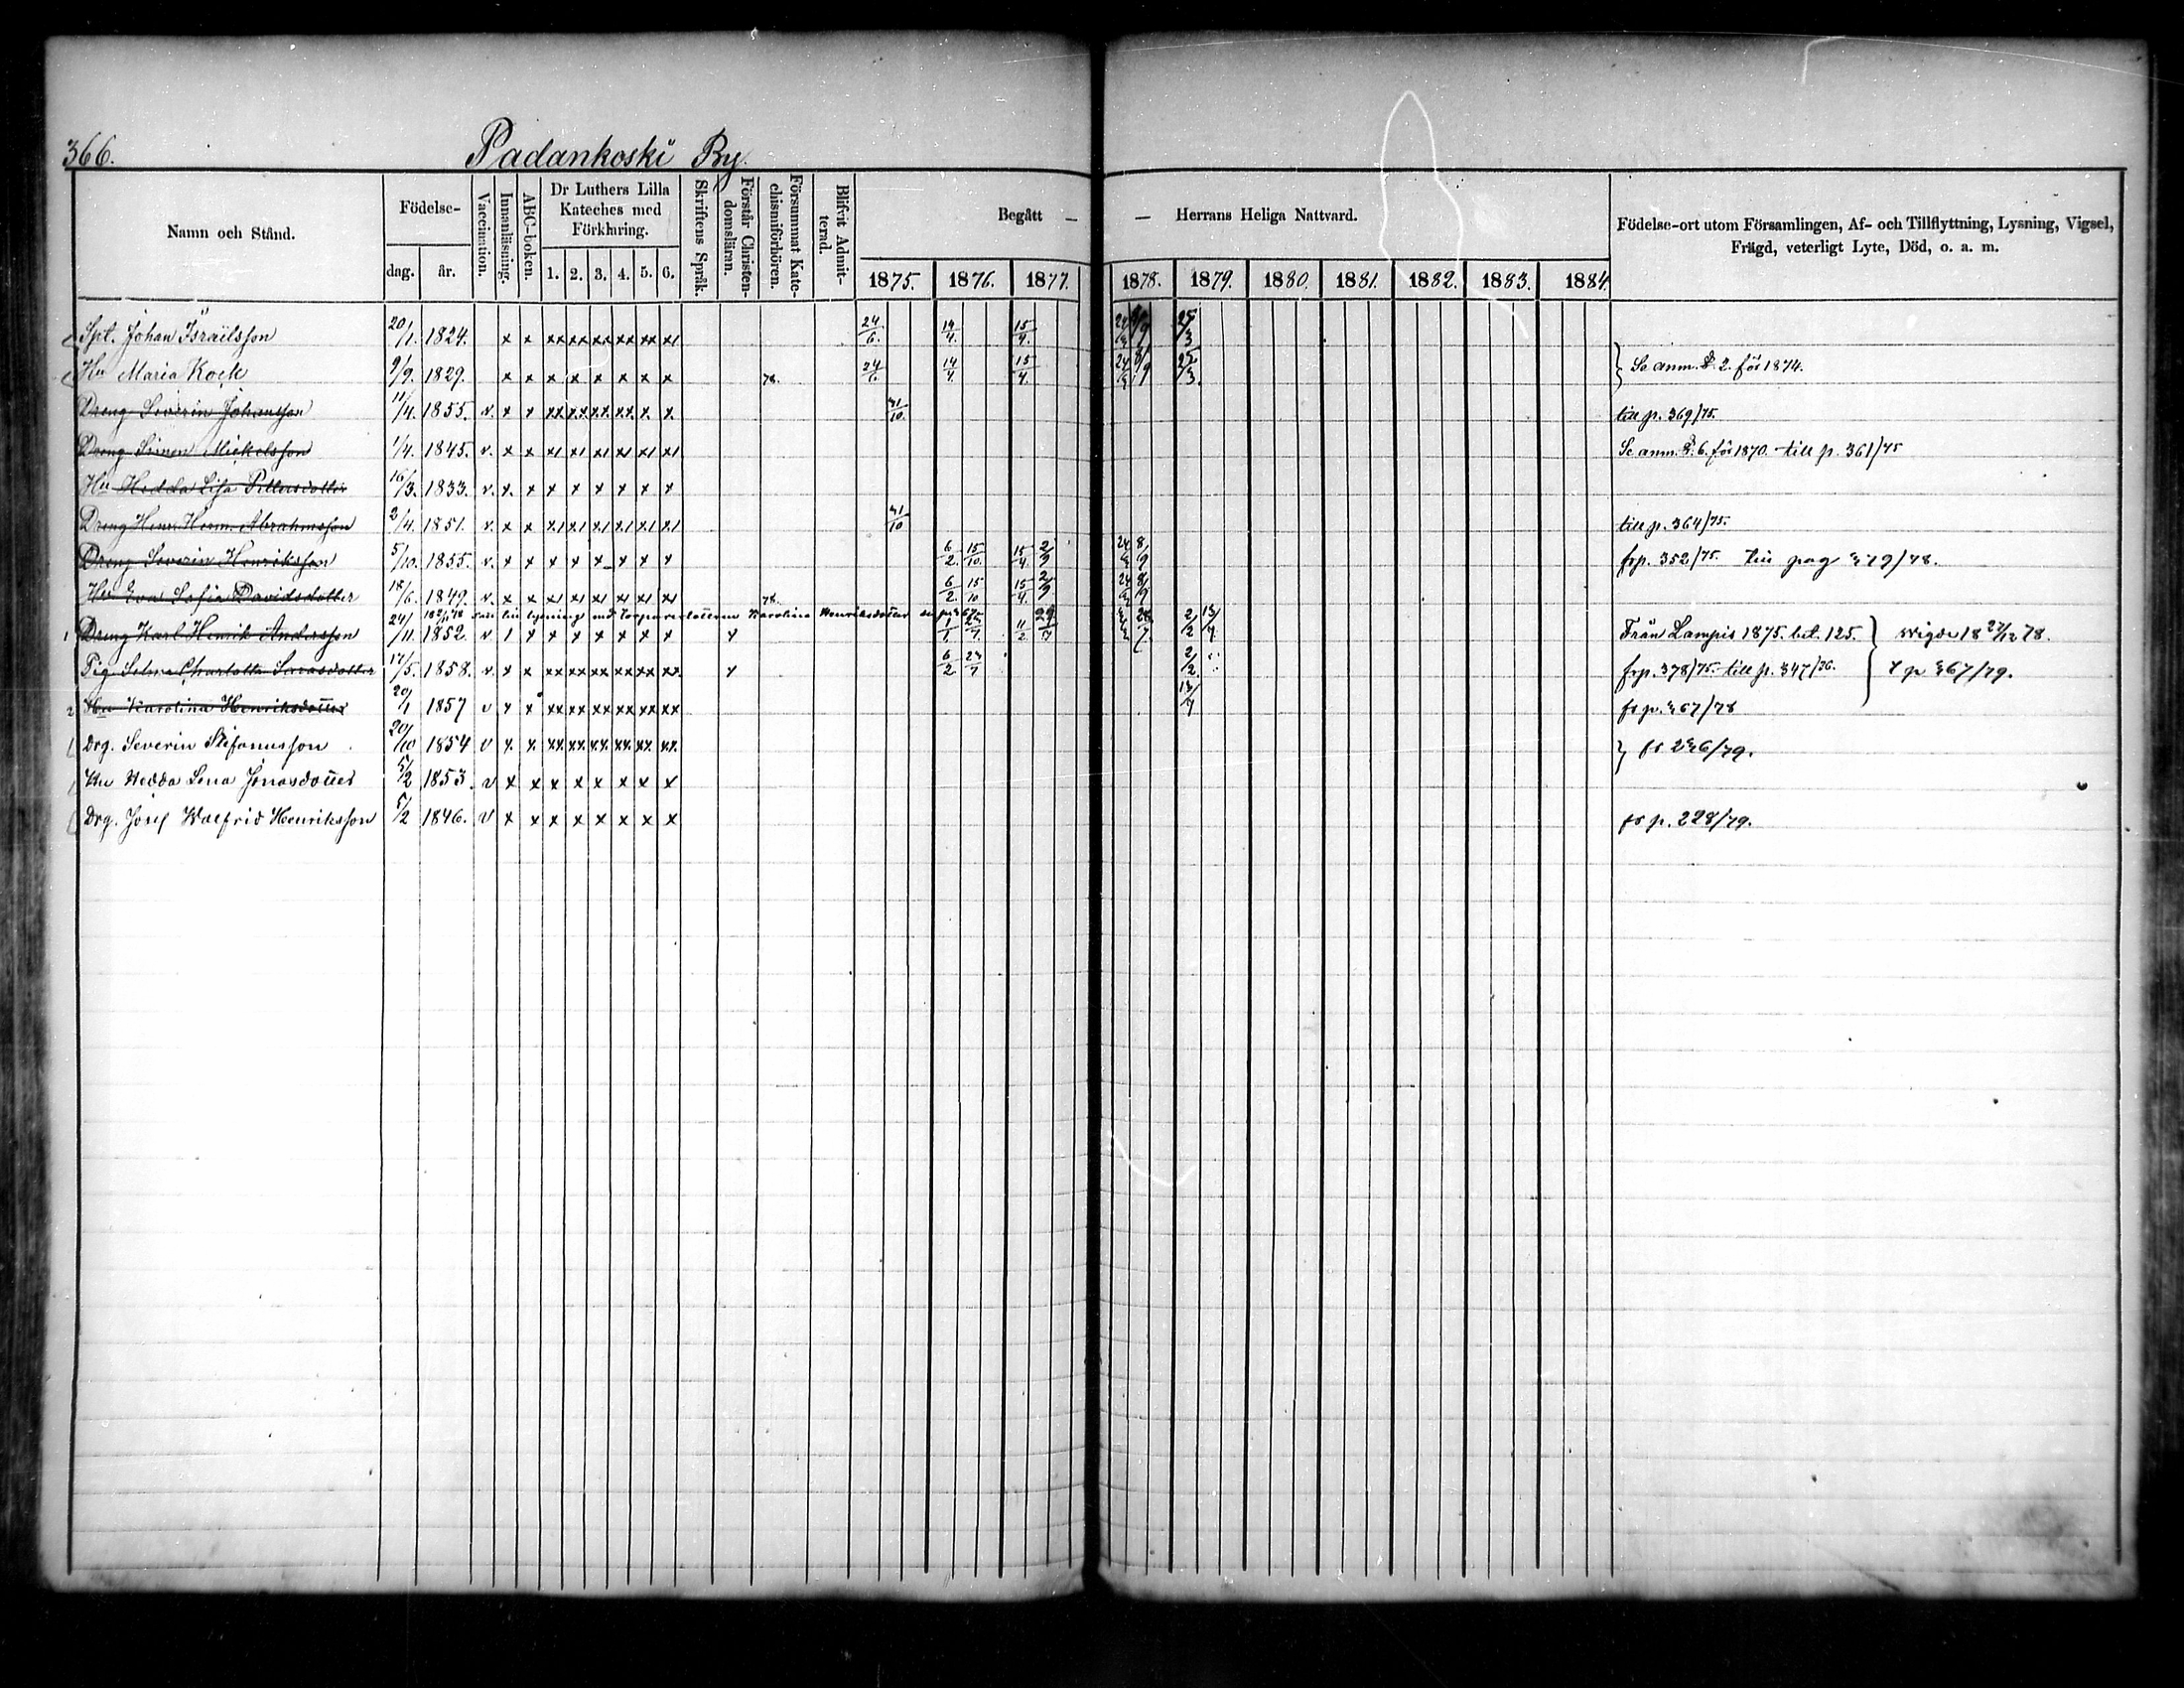 366.
Padankoski By.
Namn och Stånd.
Födelse-
dag. år.
Vaccination.
Innanläsning.
ABC-boken.
Dr Luthers Lilla
Kateches med
Förklaring.
1. 2. 3. 4. 5. 6.
Skriftens Språk.
Förstår Christen-
domsläran.
Försummat Kate-
chismiförhören.
Blifvit Admit-
terad.
Begått — — Herrans Heliga Nattvard.
1875. 1876. 1877. 1878. 1879. 1880. 1881. 1882. 1883. 1884.
Födelse-ort utom Församlingen, Af- och Tillflyttning, Lysning, Vigsel,
Frägd, veterligt Lyte, Död, o. a. m.
Johan Israëlsson 20/1. 1824. x x xx xx xx xx xx x1 24/6. 14/4. 15/4. 25/3
Hu Maria Kock 9/9. 1829. x x x x x x x x 78. 24/6. 14/4. 15/4. 25/3. Se anm. 2. för 1874.
Dreng Severin Johansson 11/4. 1855. v. x x xx xx xx xx x. x. 31/10. till p. 369/75.
Dreng Simon Mickelsson 1/4. 1845. v. x x x1 x1 x1 x1 x1 x1 Se anm. 6. för 1870. till p. 361/75
Hu Hedda Lisa Pettersdotter 16/3. 1833. v. x. x x x x x x x
Dreng Henr. Herm. Abrahamsson 2/4. 1851. v. x x x1 x1 x1 x1 x1 x1 31/10 till p. 364/75.
Dreng Severin Henriksson 5/10. 1855. v. x x x x x x x x 6/2. 15/10. 15/4. 2/9 8/9 frp. 352/75. till pag 319/78.
Hu Eva Sofia Davidsdotter 18/6. 1849. v. x x x1 x1 x1 x1 x1 x1 78. 6/2. 15/10 15/4. 2/9 8/9
till lysning med Torparedottern Karolina Henriksdotter
1 Dreng Karl Henrik Andersson 24/11. 1852. v 1 x x x x x x x x 11/2 2/2 13/7. Från Lampis 1875. bet. 125. vigde 18 27/12 78.
Pig. Selma Charlotta 17/5. 1858. v. x x xx xx xx xx xx xx x 6/2 23/7 2/2. frp. 378/75. till p. 347/76. p 367/79.
2 Hu Karolina Henriksdotter 20/1 1857 v x x xx xx xx xx xx xx 13/7 fr p. 367/78
Drg. Severin Stefanusson 20/10 1854 v x. x. xx xx xx xx xx xx. fr 236/79.
Hu Hedda Lena Jonasdotter 5/2 1853. v x x x x x x x x
Drg. Josef Walfrid Henriksson 5/2 1846. v x x x x x x x x fr p. 228/79.